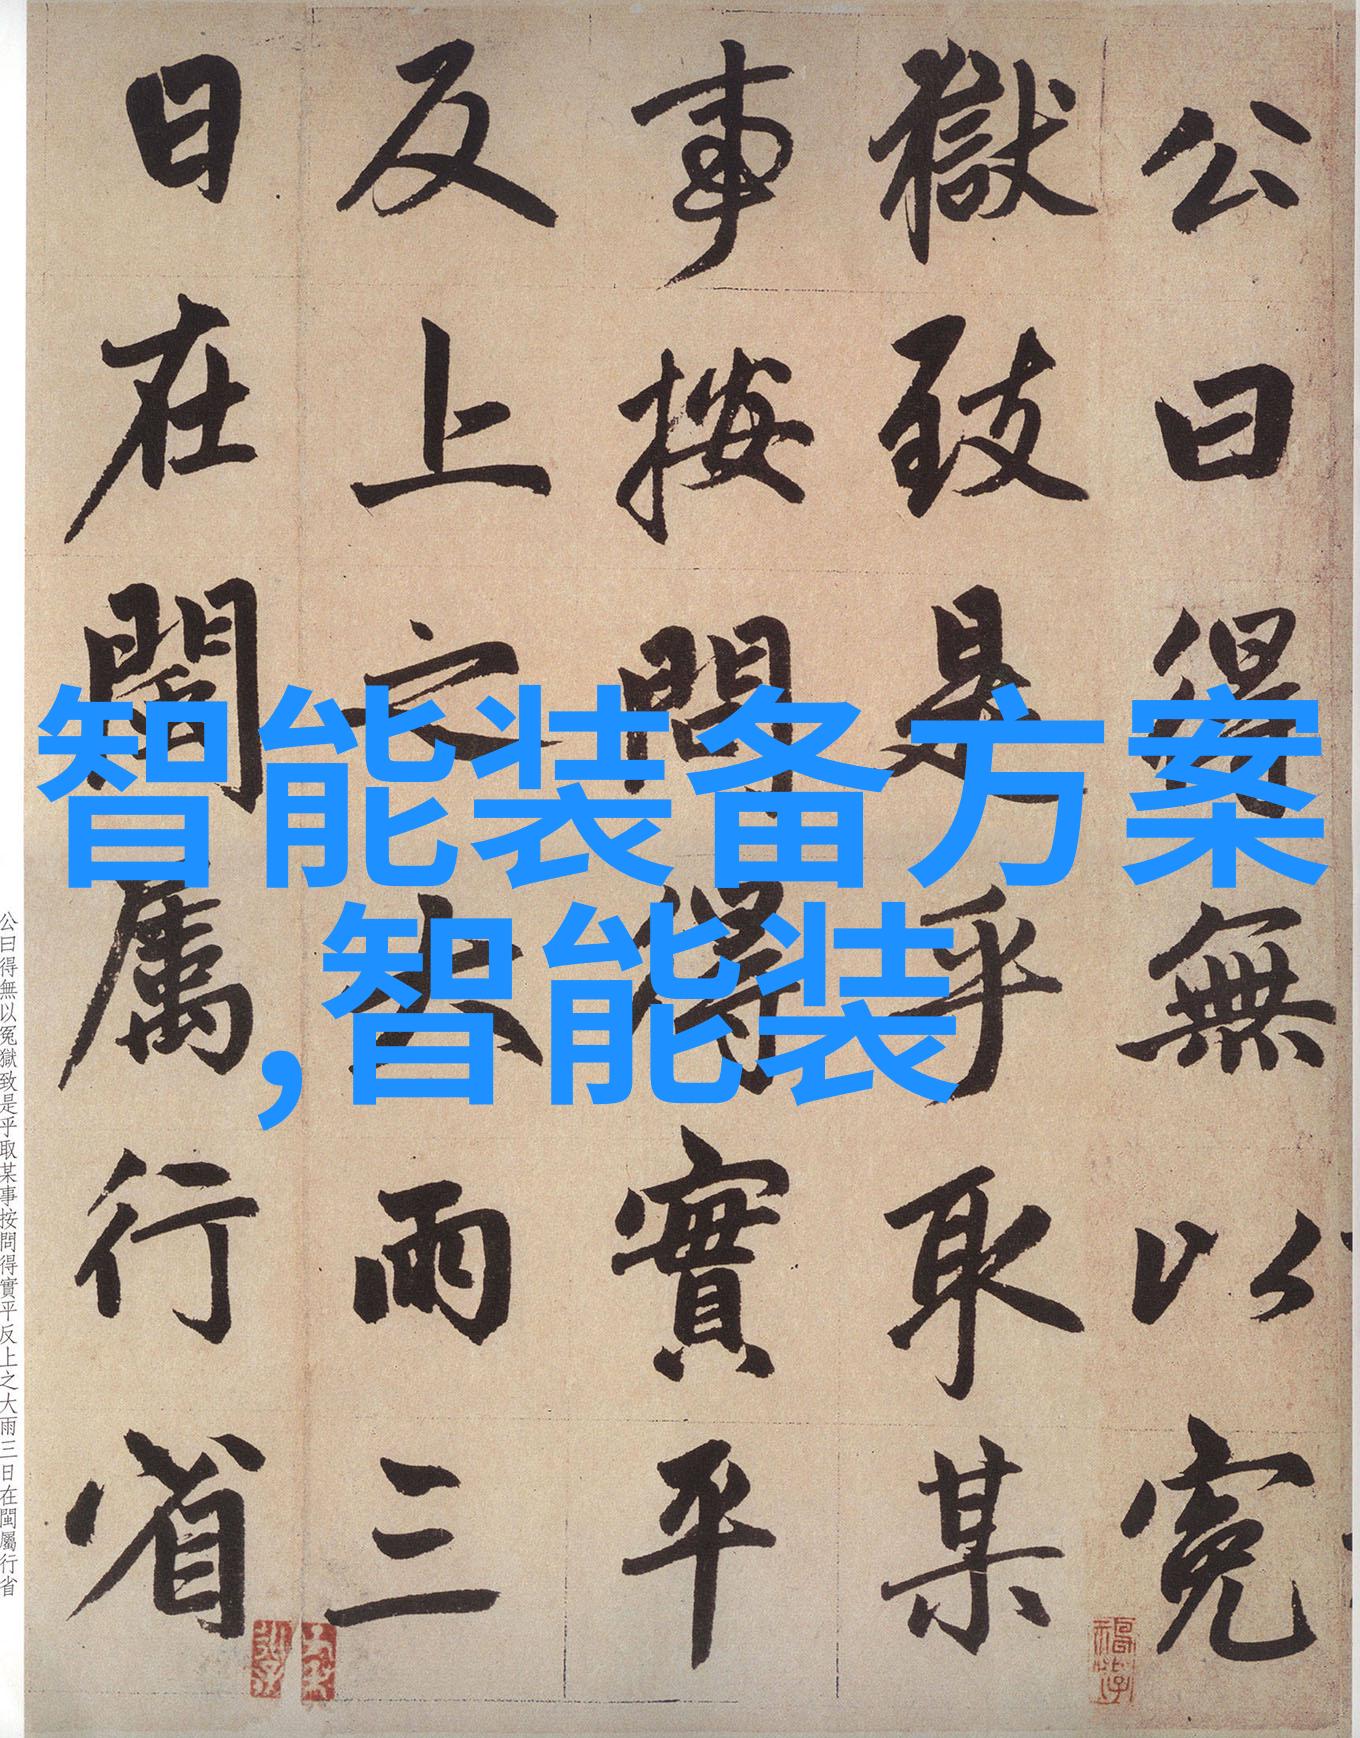 公曰得無以冤
獄致是乎取某
事按問得實平
反上之大雨三
日在閩屬行省
公曰得無以冤獄致是乎取某事按問得實平反上之大雨三日在閩屬行省
智能装备方案
,智能装